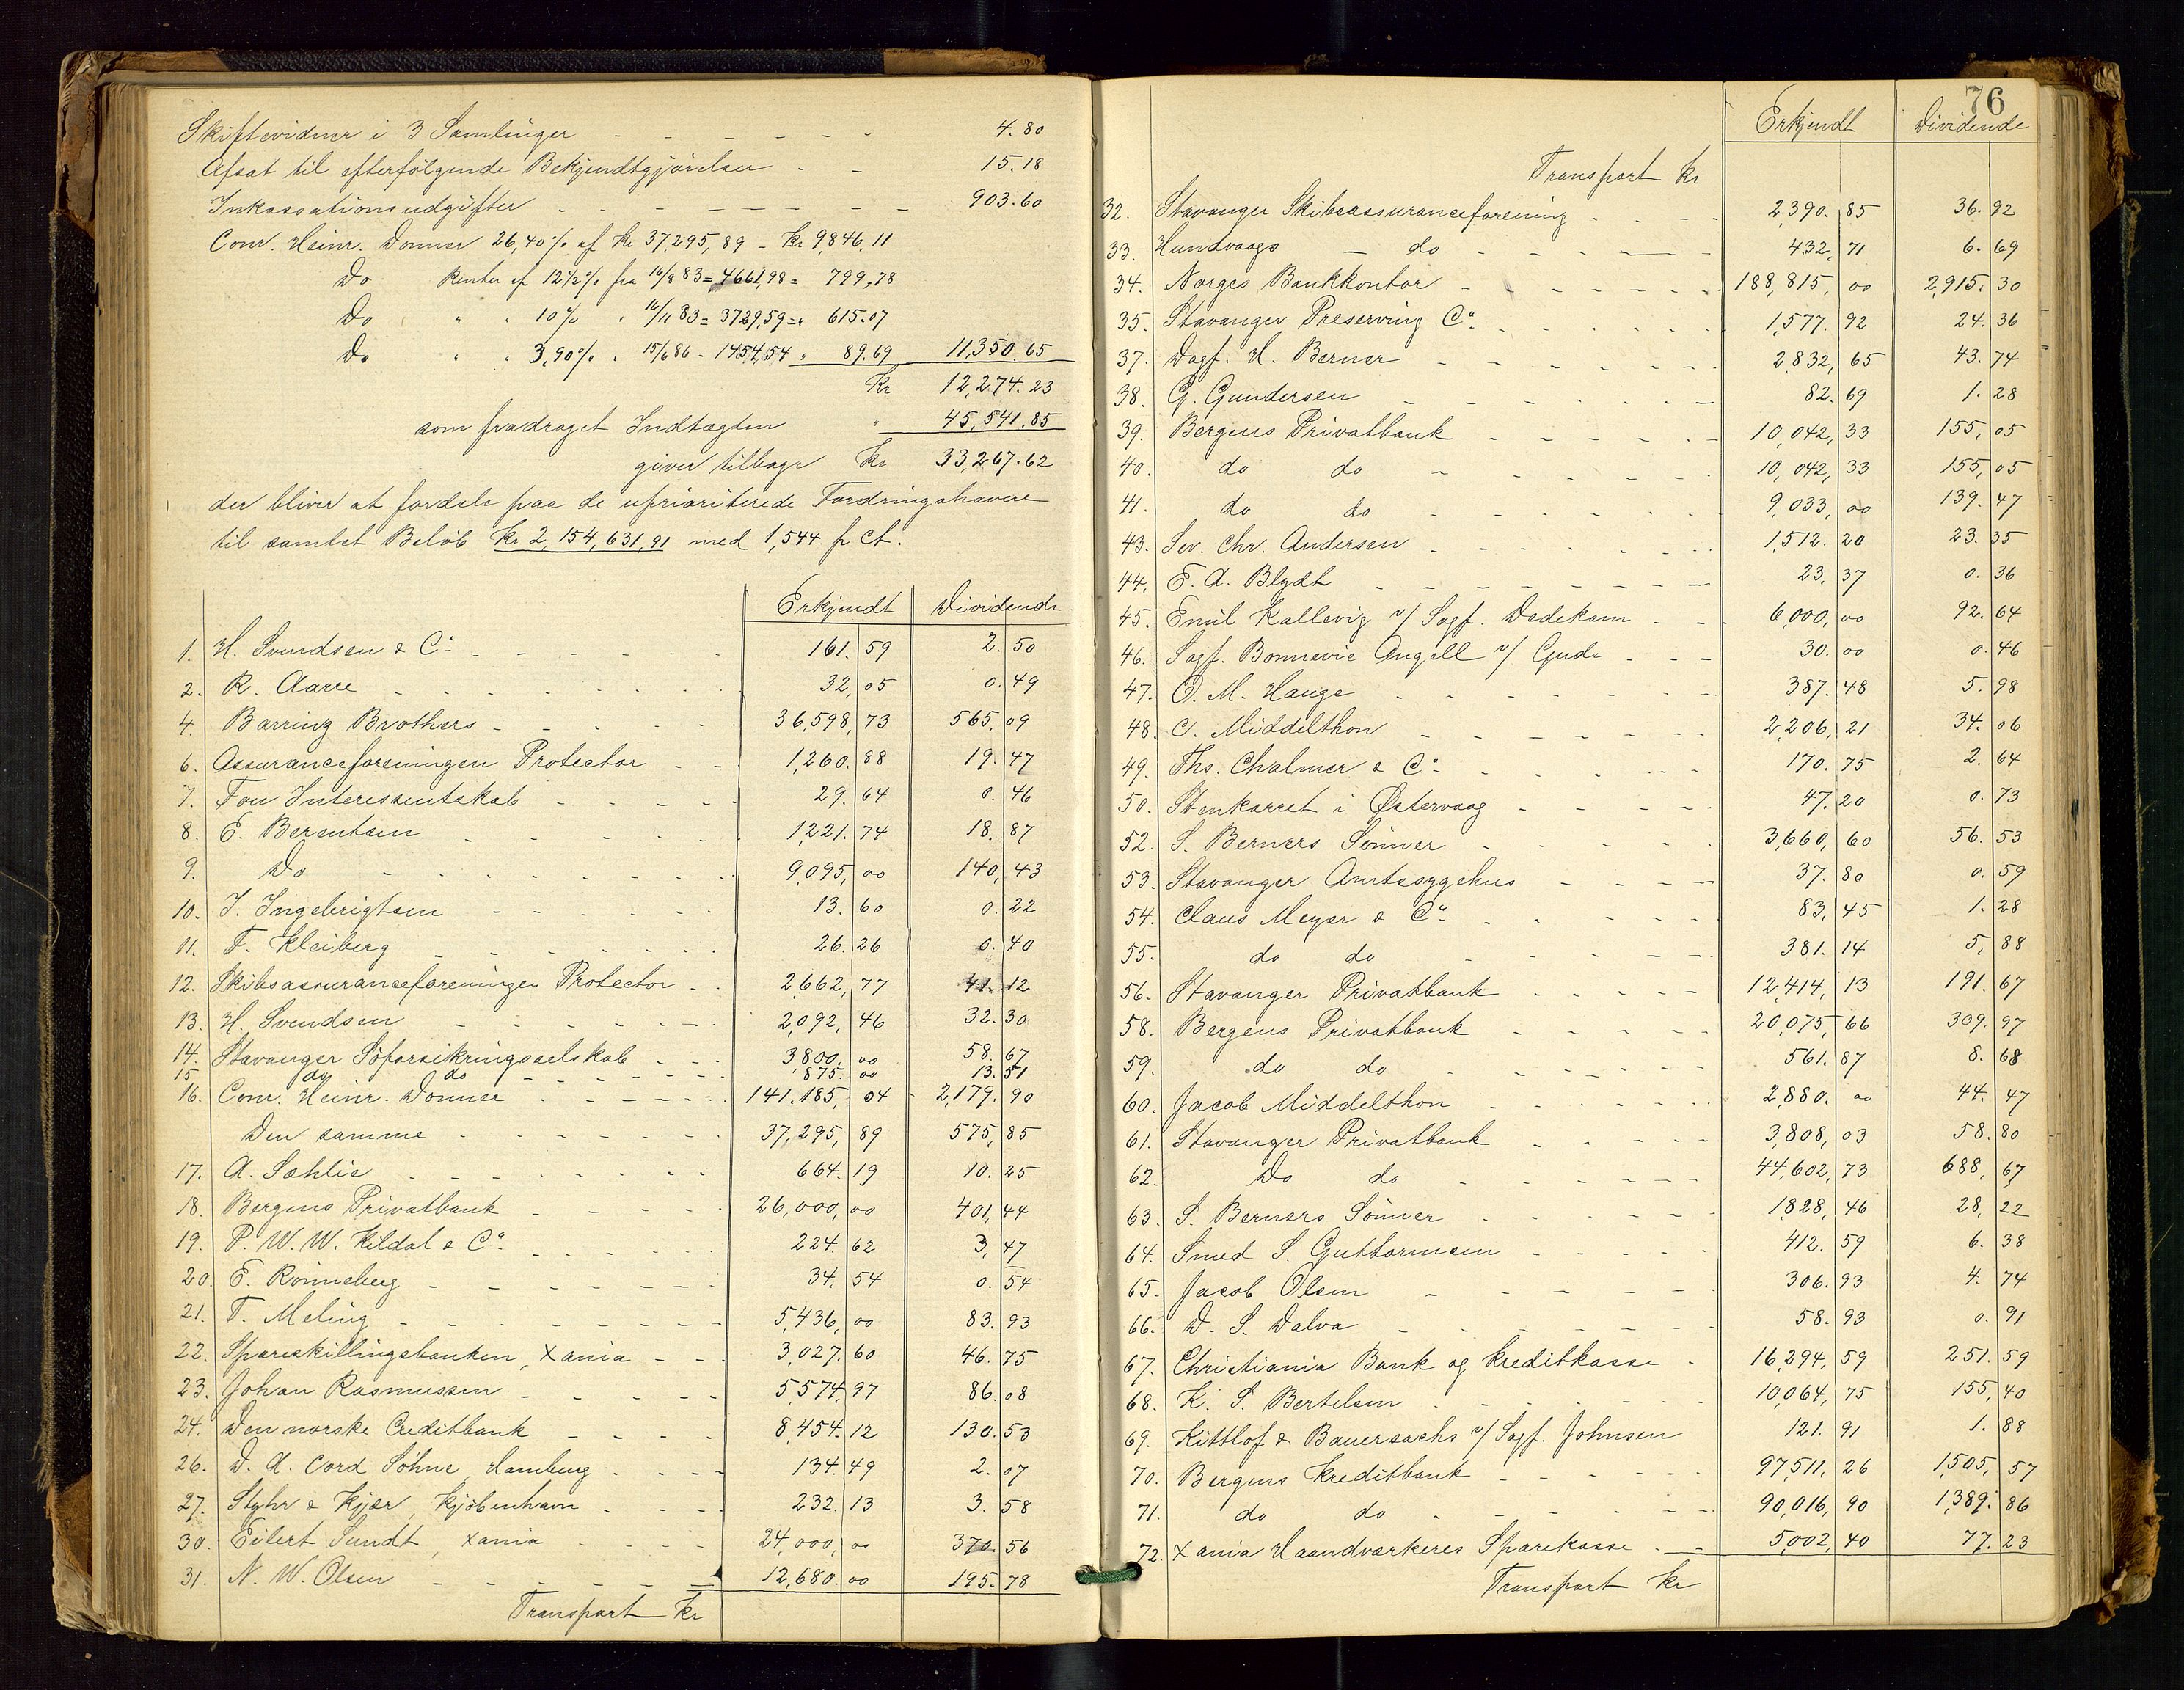 Skiftevidner i 3 Samlinger - - - - - - 4.80
Afsat til efterfølgende Bekjendtgjørelser - - 15.18
Inkassationsudgifter - - - - - - 903.60
Conr. Heinr. Donner 26,40% af Kr 37,295,89 - Kr 9,846,11
Do Renter af 12½% fra 16/8 83 = 4661,98 = 799,78
Do " " 10% " 16/11 83 = 3729,59 = " 615.07
Do " " 3,90% " 15/6 86 - 1454,54 " 89.69 11,350.65
Kr 12,274.23
som fradraget Indtægten " 45,541.85
giver tilbage Kr 33,267.62
der bliver at fordele paa de uprioriterede Fordringshavere
til samlet Beløb Kr 2,154,631,91 med 1,544 p Ct.
Erkjendt Dividende
1. H. Svendsen & Co - - - 161.59 2.50
2. R. Aarre - - - 32,05 0.49
4. Barring Brothers - - - 36,598,73 565,09
6. Assuranceforeningen Protector - - 1,260.88 19.47
7. Fou Interessentskab - - - 29.64 0.46
8. E. Berentsen - - - 1,221.74 18.87
9. Do - - - 9,095,00 140,43
10. J. Ingebrigtsen - - - 13.60 0.22
11. F. Kleiberg - - - 26.26 0.40
12. Skibsassuranceforeningen Protector - - 2,662,77 41.12
13. H. Svendsen - - - 2,092,46 32.30
14. Stavanger Søforsikringsselskab - - - 3,800.00 58.67
15 do do - - - 875.00 13.51
16. Conr. Heinr. Donner - - - 141.185,04 2,179.90
Den samme - - - 37,295,89 575,85
17. A. Sæhlie - - - 664.19 10.25
18. Bergens Privatbank - - - 26,000,00 401,44
19. P. W. W. Kildal & Co - - - 224.62 3,47
20. E. Rønneberg - - - 34.54 0.54
21. T. Meling - - - 5,436,00 83.93
22. Spareskillingsbanken, Xania - - 3,027.60 46.75
23. Johan Rasmussen - - - 5,574,97 86.08
24. Den norske Creditbank - - - 8,454.12 130.53
26. D. A. Cord Söhne, Hamburg - - - 134.49 2.07
27. Styhr & Kjær, Kjøbenhavn - - - 232.13 3.58
30. Eilert Sundt, Xania - - - 24,000,00 370.56
31. N. W. Olsen - - - 12,680.00 195.78
Transport Kr
76
Erkjendt Dividende
Transport Kr
32. Stavanger Skibsassuranceforening - - - 2,390.85 36.92
33. Hundvaags - do - - - 432,71 6.69
34. Norges Bankkontor - - - 188,815,00 2,915.30
35. Stavanger Preserving Co - - - 1,577.92 24.36
37. Dagf. H. Berner - - - 2,832,65 43.74
38. G. Gundersen - - - 82.69 1.28
39. Bergens Privatbank - - - 10,042,33 155,05
40. do do - - - 10,042,33 155,05
41. do do - - - 9,033,00 139.47
43. Sev. Chr. Andersen - - - 1,512.20 23.35
44. E. A. Blydt - - - 23,37 0.36
45. Emil Kallevig v/ Sagf. Dedekam - - 6,000,00 92.64
46. Sagf. Bonnevie Angell v/ Gjude - - - 30.00 0.46
47. O. M. Hauge - - - 387.48 5.98
48. C. Middelthon - - - 2,206,21 34.06
49. Ths. Chalmer & Co - - - 170.75 2.64
50. Stenkarret i Østervaag - - - 47.20 0.73
52. S. Berners Sønner - - - 3,660,60 56.53
53. Stavanger Amtssygehus - - - 37.80 0.59
54. Claus Meyer & Co - - - 83,45 1.28
55. do do - - - 381.14 5,88
56. Stavanger Privatbank - - - 12,414,13 191.67
58. Bergens Privatbank - - - 20,075,66 309.97
59. do do - - - 561.87 8.68
60. Jacob Middelthon - - - 2,880.00 44.47
61. Stavanger Privatbank - - - 3,808,03 58.80
62. Do do - - - 44,602,73 688,67
63. S. Berners Sønner - - - 1,828,46 28,22
64. Smed S. Guttormsen - - - 412.59 6.38
65. Jacob Olsen - - - 306.93 4.74
66. D. S. Dalva - - - 58.93 0.91
67. Christiania Bank og Kreditkasse - 16,294,59 251.59
68. K. S. Bertelsen - - - 10,064,75 155,40
69. Kittlof & Bauersachs v/ Sagf. Johnsen 121.91 1.88
70. Bergens Kreditbank - - - 97,511,26 1,505,57
71. do do - - - 90,016,90 1,389.86
72. Xania Haandværkeres Sparekasse - - 5,002,40 77.23
Transport Kr